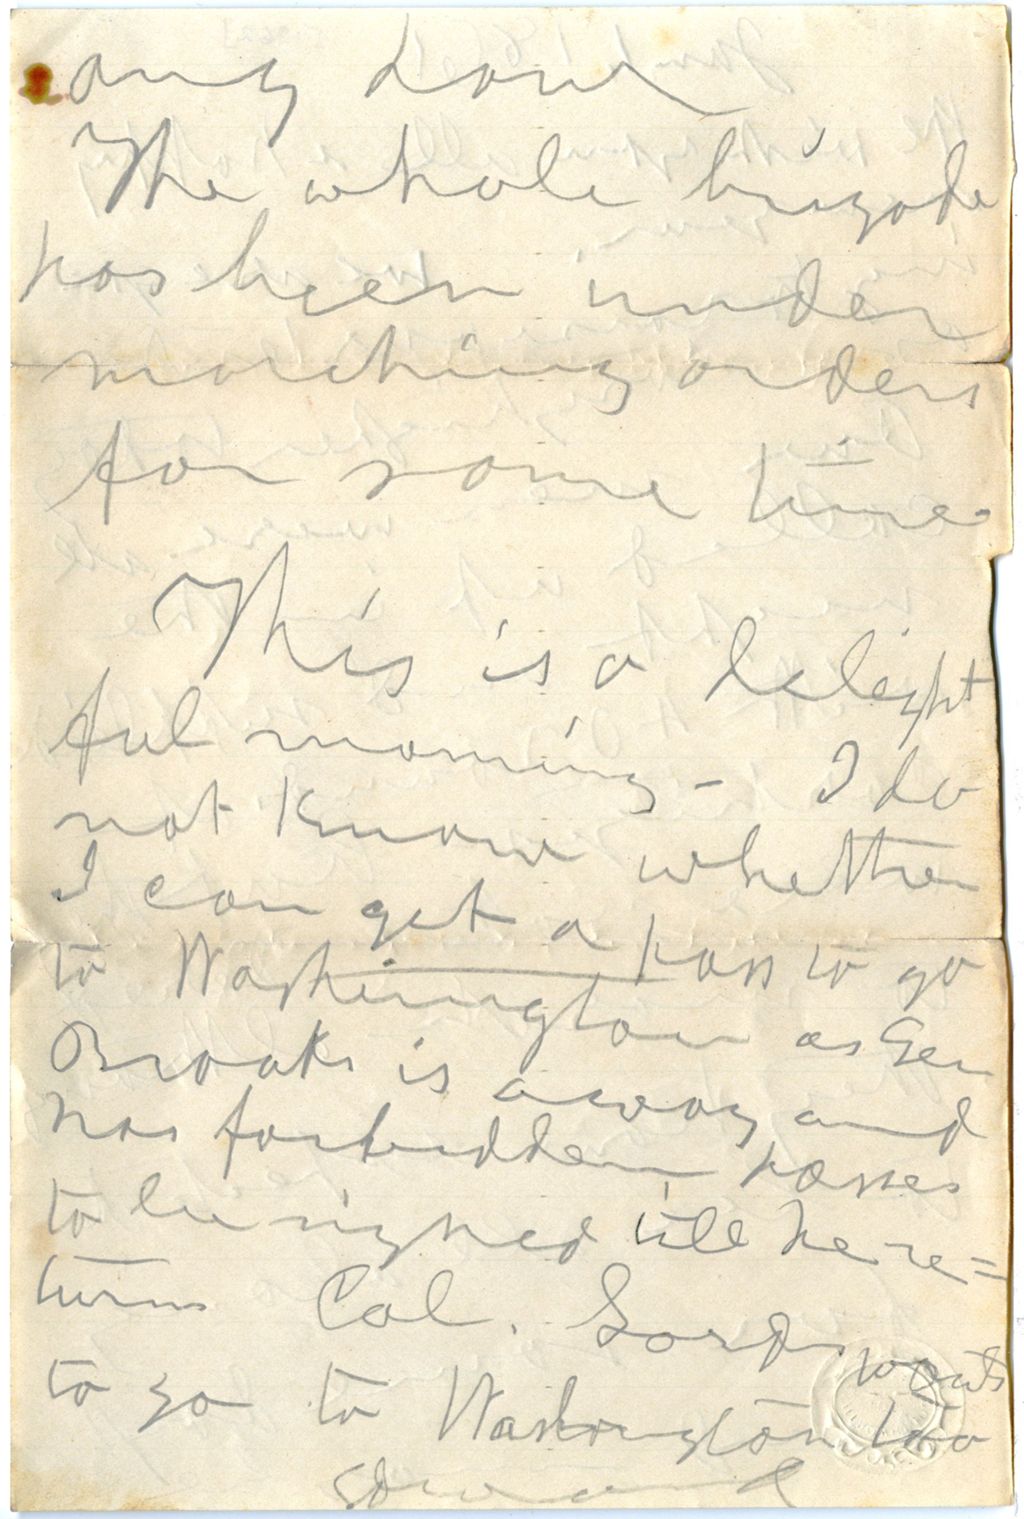 any hour
The whole brigade
has been under
marching orders
for some time.
This is a delight
ful morning - I do
not know whether
I can get a pass to go
to Washington as Gen
Brooks is away and
has forbidden passes
to be signed till he re=
turns Col. Lord wants
to go to Washington too
Edward